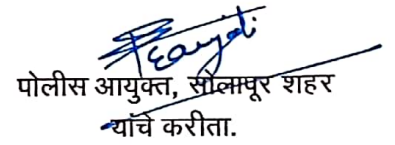 पोलीस आयुक्त, सोलापूर शहर
यांचे करीता.